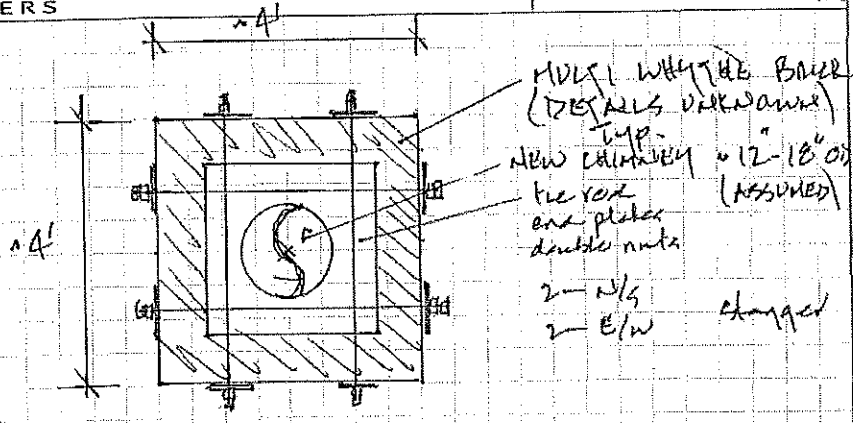 ERS
~4'
MULTI WHYTHE BRICK
(DETAILS UNKNOWN)
TYP.
NEW CHIMNEY ~12"-18" OD
(ASSUMED)
tie rod
end plates
double nuts
~4'
2 - N/S
2 - E/W stagger